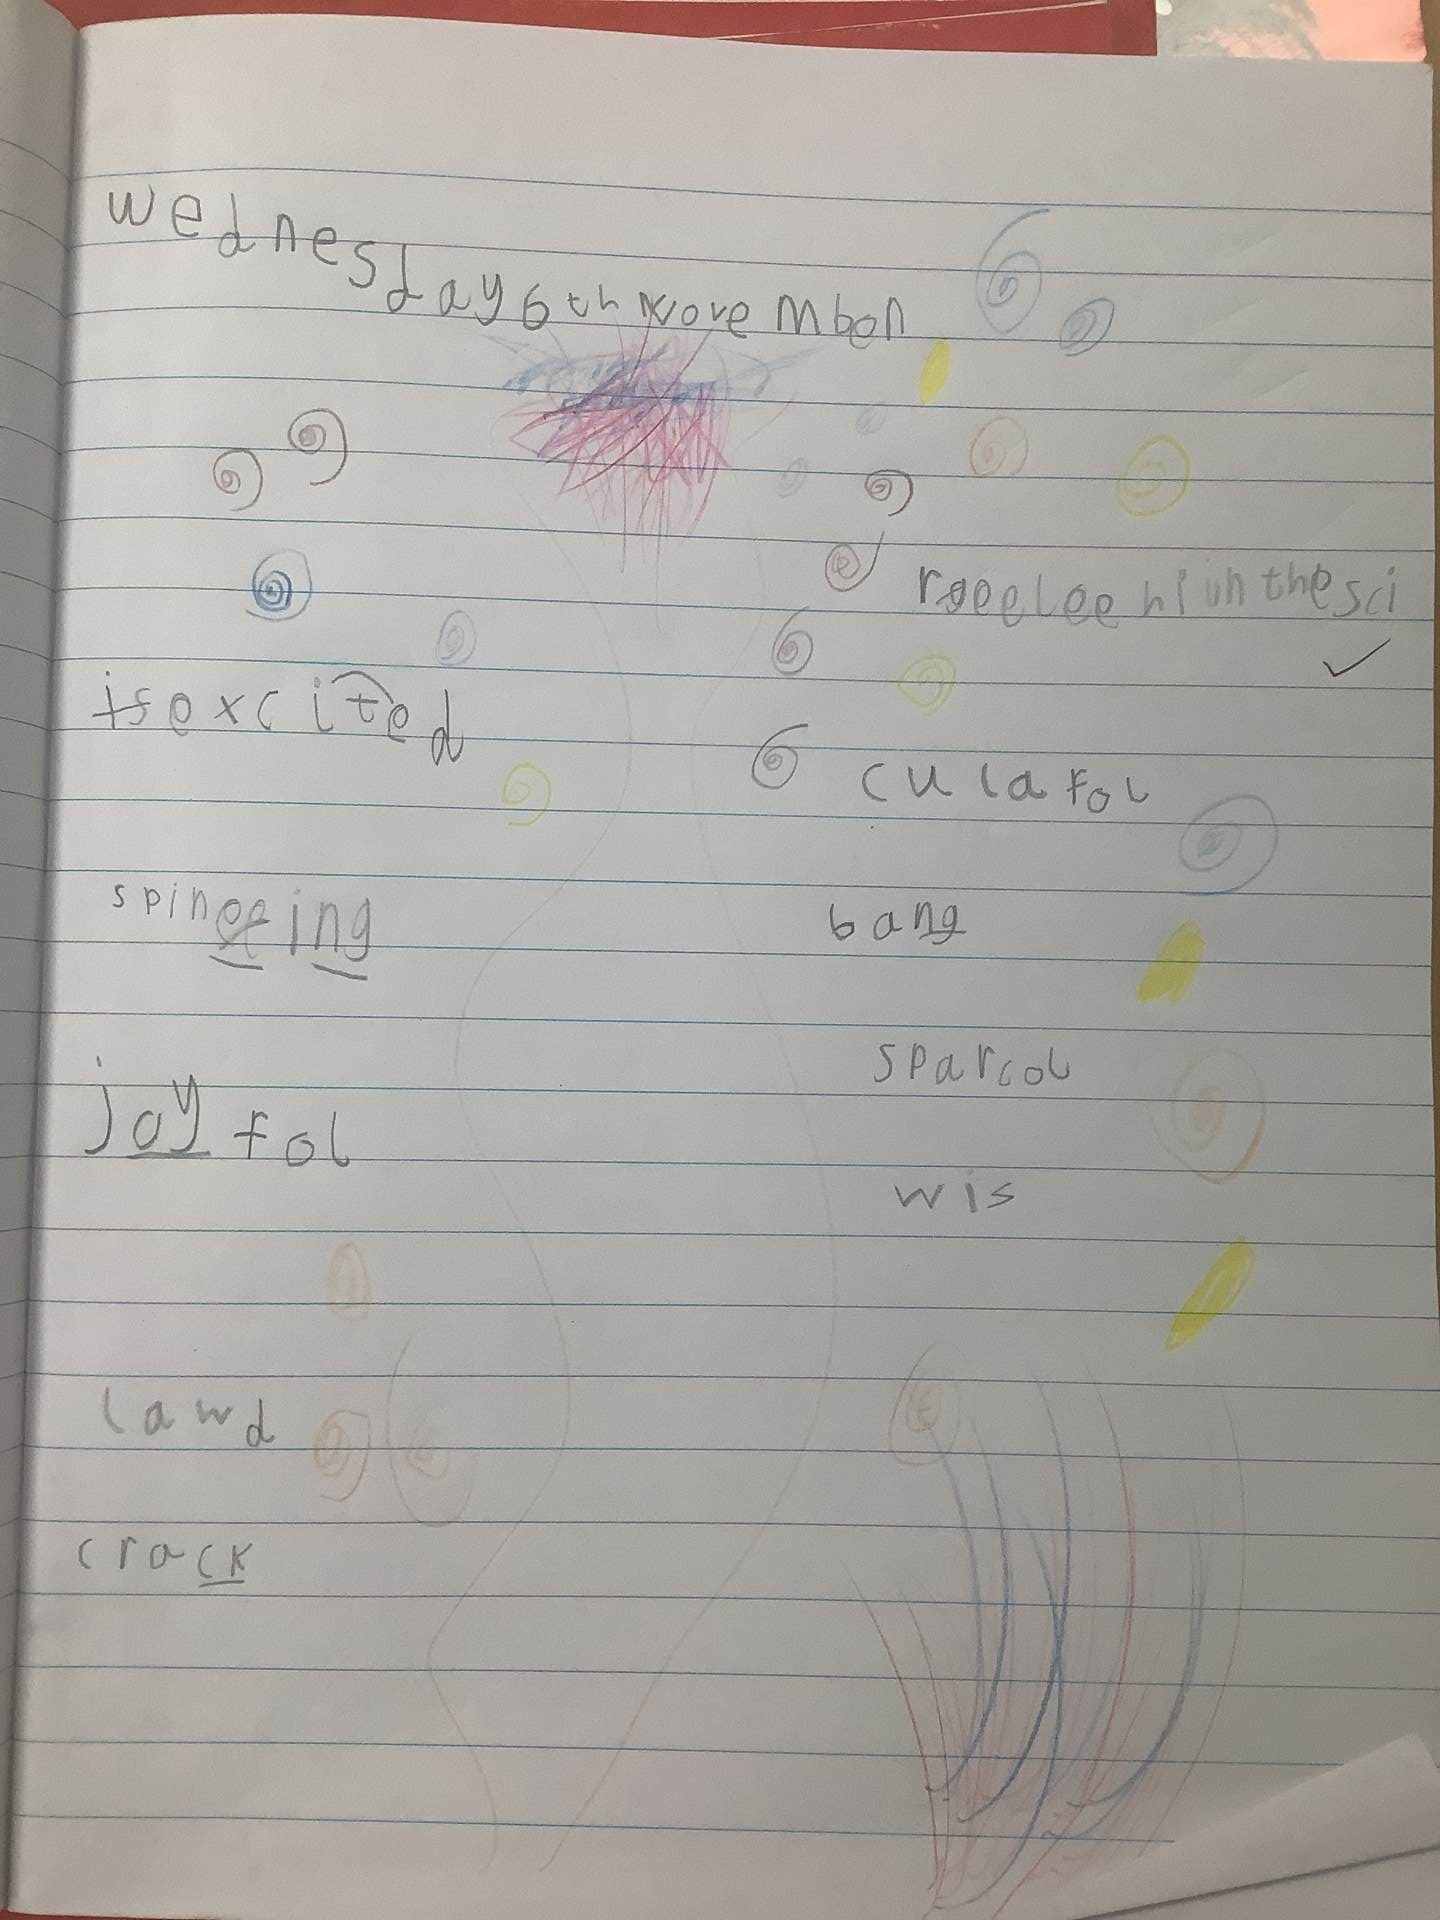 wednesday 6th Novembon
reeelee hi in the sci
is excited
culafol
spineeing
bang
sparcol
joyfol
wis
lawd
crack